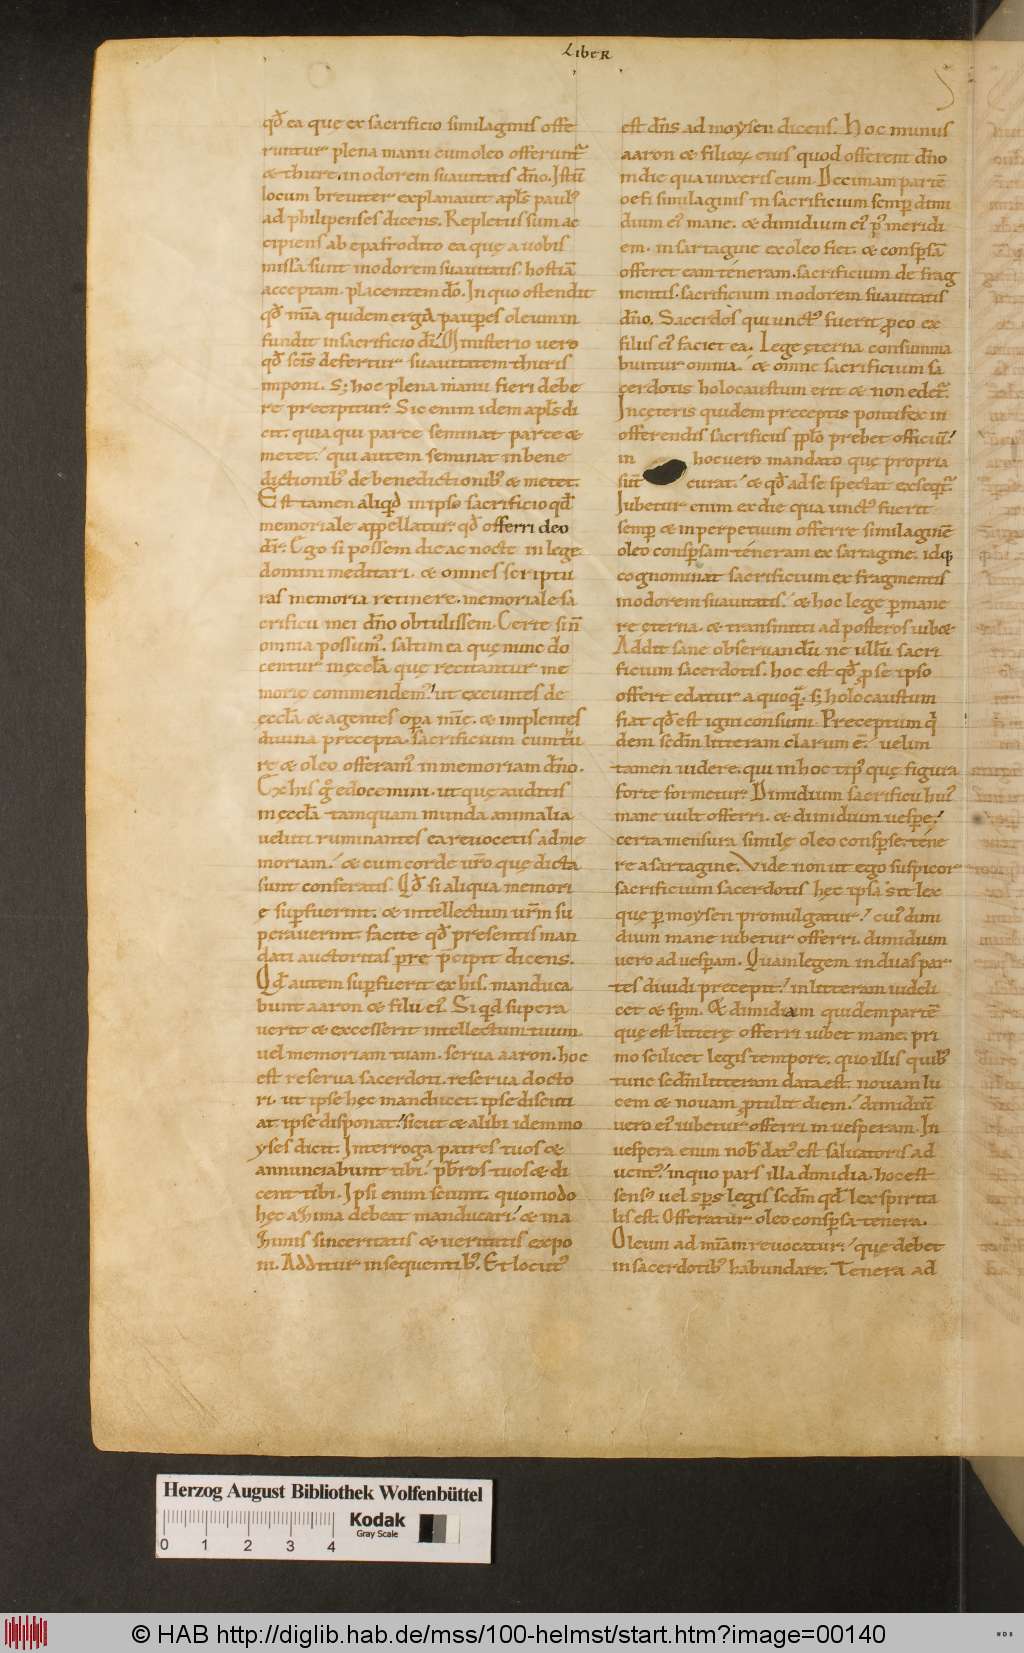 Liber
qd̄ ea que ex sacrificio similaginis offe
runtur plena manu cum oleo offerunt᷑
& thure. in odorem suauitatis dn̄o. Istū
locum breuiter explanauit apl̄s paulꝰ
ad philipenses dicens. Repletus sum ac
cipiens ab epafrodito ea quę a uobis
missa sunt in odorem suauitatis. hostiā
acceptam. placentem dō. In quo ostendit
qd̄ mīa quidem erga paup̄es oleum in
fundit in sacrificio dī. Ministerio uero
qd̄ scīs defertur suauitatem thuris
imponi. S; hoc plena manu fieri debe
re precipitur. Sic enim idem apl̄s di
cit. quia qui parce seminat parce &
metet. qui autem seminat in bene
dictionibꝰ de benedictionibꝰ & metet.
Est tamen aliqd̄ in ipso sacrificio qd̄
memoriale appellatur. qd̄ offerri deo
dr̄. Ego si possem die ac nocte in lege
domini meditari. & omnes scriptu
ras memoria retinere. memoriale sa
crificii mei dn̄o obtulissem. Certe si n̄
omnia possumꝰ. saltim ea quę nunc do
centur in ęccl̄a quę recitantur me
morię commendemꝰ. ut exeuntes de
ęccl̄a & agentes op̄a mīę. & implentes
diuina precepta. sacrificium cum tu
re & oleo offeramꝰ in memoriam dn̄o.
Ex his g̊ edocemini. ut quę auditis
in ęccl̄a tamquam munda animalia
ueluti ruminantes ea reuocetis ad me
moriam. & cum corde ur̄o quę dicta
sunt conferatis. Qd̄ si aliqua memori
ę sup̄fuerint. & intellectum ur̄m su
perauerint. facite qd̄ presentis man
dati auctoritas pre p̄cipit dicens.
Qd̄ autem sup̄fuerit ex his. manduca
bunt aaron & filii eiꝰ. Si qd̄ supera
uerit & excesserit intellectum tuum
uel memoriam tuam. serua aaron. hoc
est reserua sacerdoti. reserua docto
ri. ut ipse hęc manducet. ipse discuti
at ipse disponat. sicut & alibi idem mo
yses dicit. Interroga patres tuos &
annunciabunt tibi. pb̄ros tuos & di
cent tibi. Ipsi enim sciunt. quomodo
hęc azima debeat manducari. & in a
zimis sinceritatis & ueritatis expo
ni. Additur in sequentibꝰ. Et locutꝰ
est dn̄s ad moysen dicens. Hoc munus
aaron & filioꝝ eius quod offerent dn̄o
in die qua unxeris eum. Decimam partē
oefi similaginis in sacrificium semp̄ dimi
dium eiꝰ mane. & dimidium eiꝰ pꝰ meridi
em. in sartagine ex oleo fiet. & consp̄sā
offeret eam teneram. sacrificium de frag
mentis. sacrificium in odorem suauitatis
dn̄o. Sacerdos qui unctꝰ fuerit ꝓ eo ex
filiis eiꝰ faciet ea. Lege ęterna consumma
buntur omnia. & omne sacrificium sa
cerdotis holocaustum erit & non edet᷑.
In ceteris quidem preceptis pontifex in
offerendis sacrificiis ppl̄o prebet officiū.
in hoc uero mandato quę propria
sūt curat. & qd̄ ad se spectat exseqt᷑.
Iubetur enim ex die qua unctꝰ fuerit
semp̄ & in perpetuum offerre similaginē
oleo consp̄sam teneram ex sartagine. idq;
cognominat sacrificium ex fragmentis
in odorem suauitatis. & hoc lege p̄mane
re ęterna. & transmitti ad posteros iub&
Addit sane obseruandū ne ullū sacri
ficium sacerdotis. hoc est qd̄ ꝓ se ipso
offert edatur a quoq̄. s; holocaustum
fiat qd̄ est igni consumi. Preceptum q̇
dem scdm̄ litteram clarum ē. uelim
tamen uidere. qui in hoc tipꝰ quę figura
forte formetur. Dimidium sacrificii huiꝰ
mane uult offerri. & dimidium uesp̄e.
certa mensura similę oleo consp̄se. téne
re a sartagine. Vide non ut ego suspicor
sacrificium sacerdotis hęc ipsa sit lex
quę p̄ moysen promulgatur. cuiꝰ dimi
dium mane iubetur offerri. dimidium
uero ad uesp̄am. Quam legem in duas par
tes diuidi precepit. in litteram uideli
cet & sp̄m. & dimidiam quidem partē
quę est litterę offerri iubet mane. pri
mo scilicet legis tempore. quo illis quibꝰ
tunc scdm̄ litteram data est. nouam lu
cem & nouam ꝓtulit diem. dimidiū
uero eiꝰ iubetur offerri in uesperam. In
uespera enim nob̄ datꝰ est saluatoris ad
uentꝰ. in quo pars illa dimidia. hoc est
sensꝰ uel sp̄s legis scdm̄ qd̄ lex spirita
lis est. Offeratur oleo consp̄sa tenera.
Oleum ad mīam reuocatur. quę debet
in sacerdotibꝰ habundare. Tenera ad
Herzog August Bibliothek Wolfenbüttel
Kodak
Gray Scale
0 1 2 3 4
© HAB http://diglib.hab.de/mss/100-helmst/start.htm?image=00140